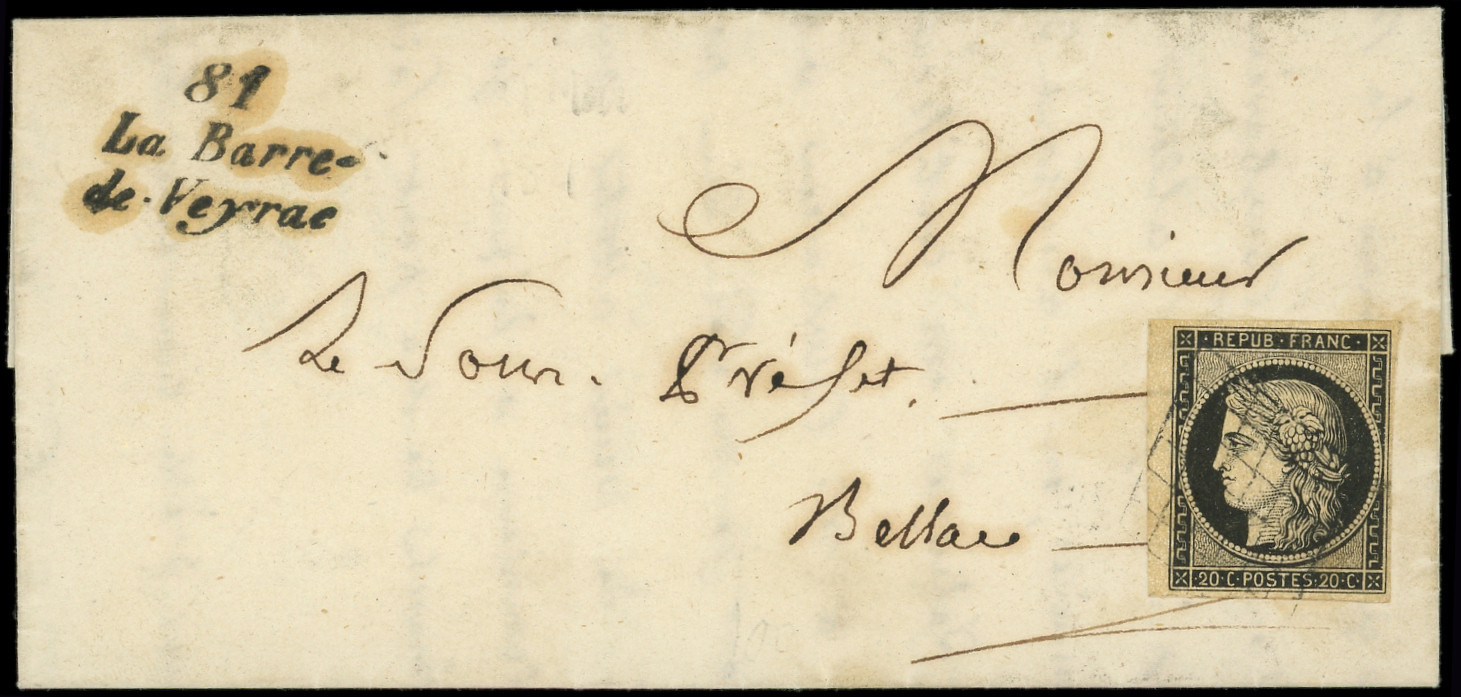 81
La Barre-
de-Veyrac
Monsieur
Le Sous-Préfet.
Bellac
REPUB·FRANC·
20·C·POSTES·20·C·